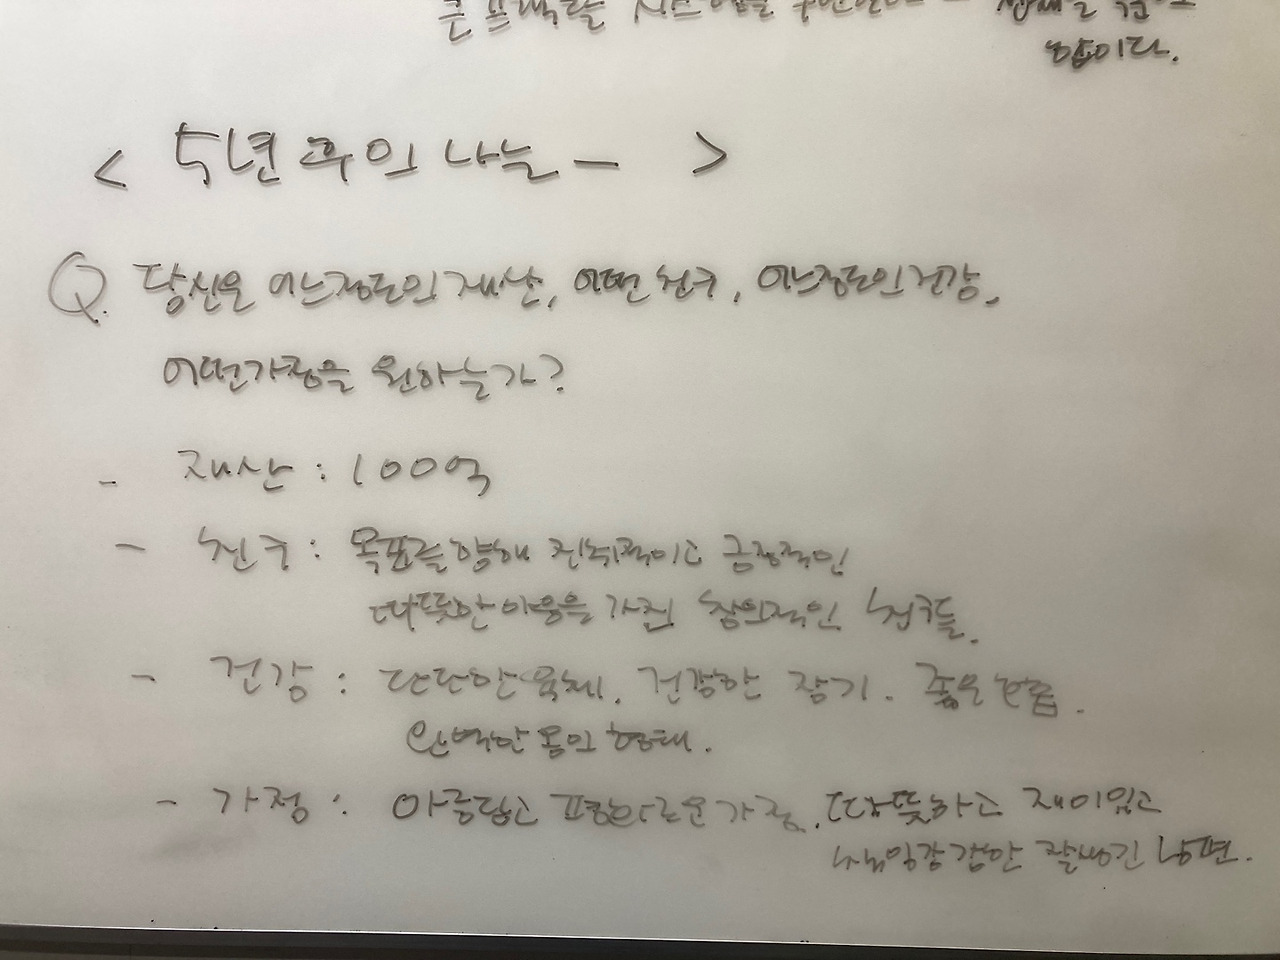 큰 프랙탈 시스템을
합이다.
< 5년 후의 나는 - >
Q. 당신은 어느정도의 재산, 어떤 친구, 어느정도의 건강,
어떤가정을 원하는가?
- 재산 : 100억
- 친구 : 목표를 향해 진취적이고 긍정적인
따뜻한 마음을 가진 창의적인 친구들.
- 건강 : 단단한 육체. 건강한 장기. 좋은 호흡.
완벽한 몸의 형태.
- 가정 : 아름답고 평화로운 가정. 따뜻하고 재미있고
책임감 강한 잘생긴 남편.